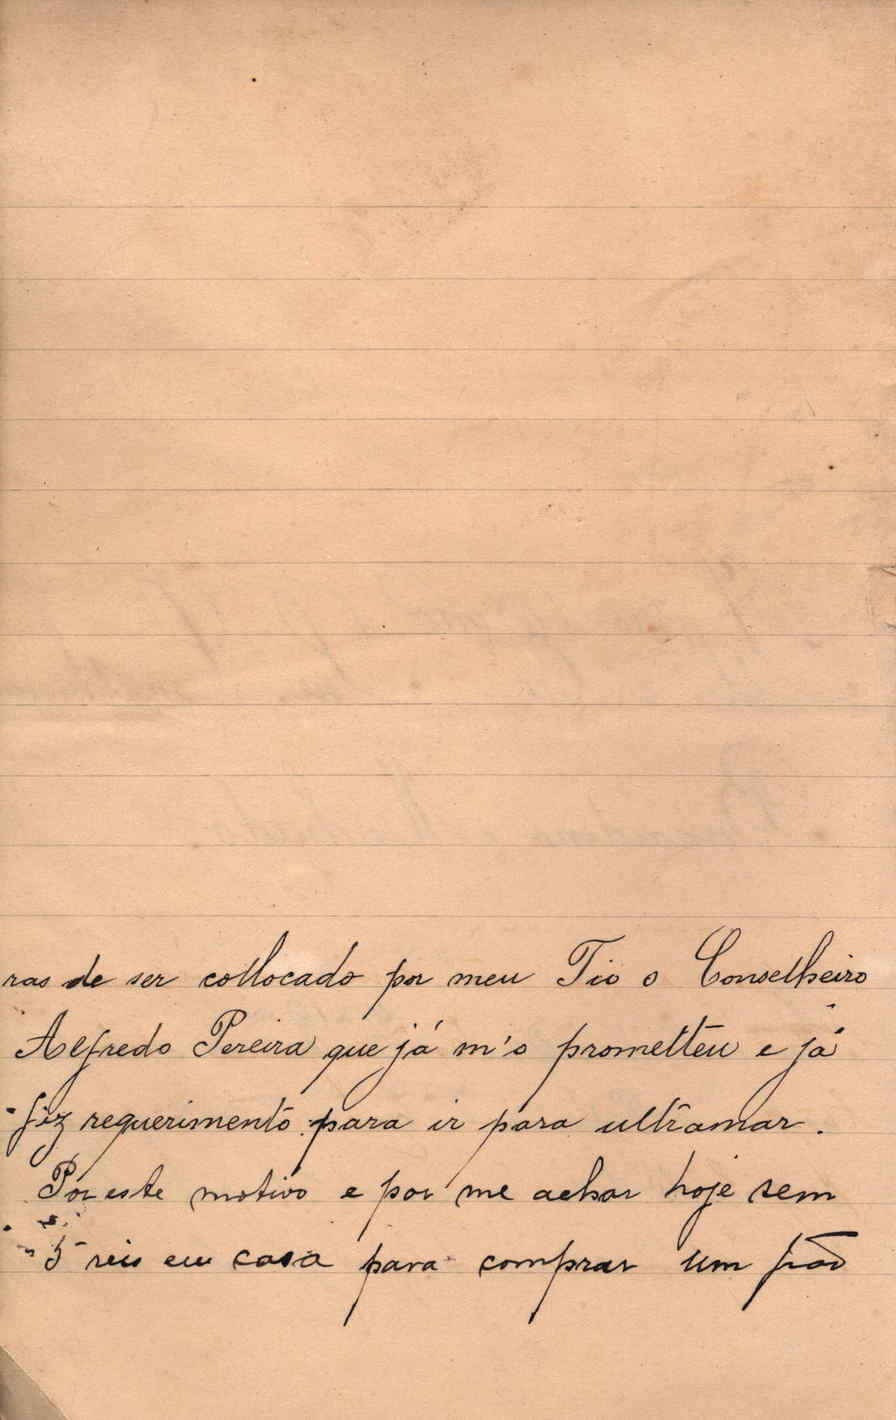 ras de ser collocado por meu Tio o Conselheiro
Alfredo Pereira que já m'o prometteu e já
fiz requerimento para ir para ultramar.
Por este motivo e por me achar hoje sem
5 reis em casa para comprar um pão